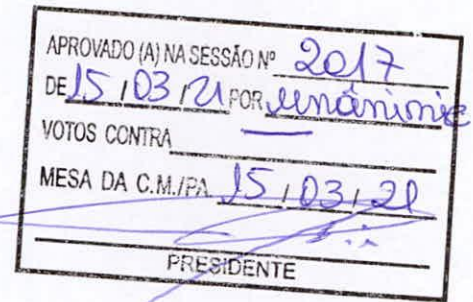 APROVADO (A) NA SESSÃO Nº 2017
DE 15 / 03 / 21 POR unânime
VOTOS CONTRA —
MESA DA C.M./PA. 15 / 03 / 21
PRESIDENTE